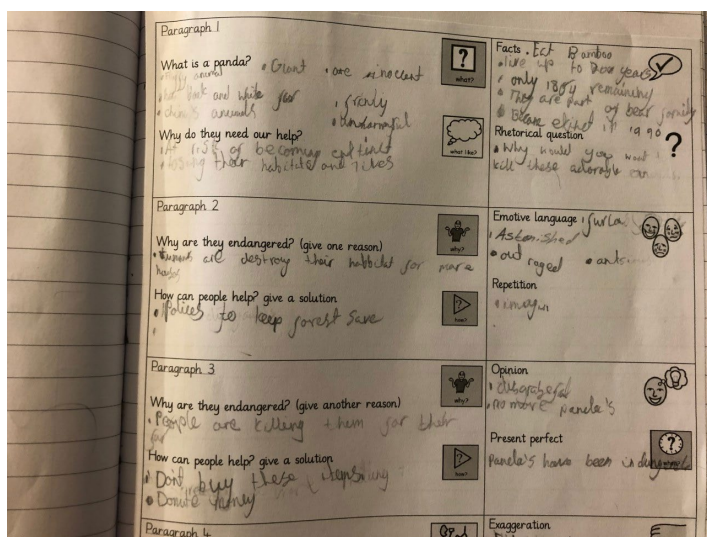 Paragraph 1
What is a panda? • Giant • are inocent
what?
• Fluffy animal
• black and white fur • frenly
• china's animals
Why do they need our help?
what like?
• At risk of becoming extinct
• losing their habitats and lives
Facts • Eat Bamboo
• live up to 20 years
• only 1864 remaining
• They are part of bear family
1990
Rhetorical question
?
• Why would you want
kill these adorable
Paragraph 2
Why are they endangered? (give one reason)
why?
• humans are destroy their habbitat for more
houses
How can people help? give a solution
how?
• Polices to keep forest save
Emotive language
• Astonished
• out raged
Repetition
• imagin
Paragraph 3
Why are they endangered? (give another reason)
why?
• People are killing them for their
fur
How can people help? give a solution
how?
• Dont buy these
• Donate money
Opinion
• no more panda's
Present perfect
Panda's have been in
Paragraph 4
Exaggeration